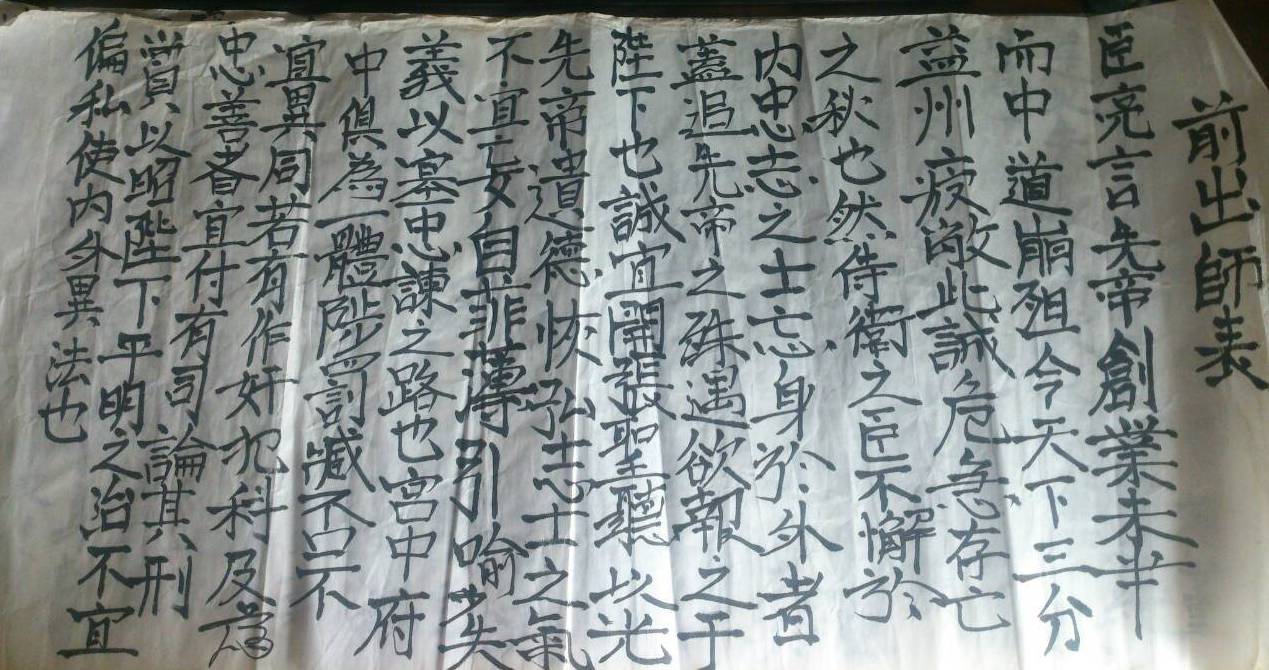 前出師表
臣亮言先帝創業未半
而中道崩殂今天下三分
益州疲敝此誠危急存亡
之秋也然侍衛之臣不懈於
内忠志之士忘身於外者
蓋追先帝之殊遇欲報之于
陛下也誠宜開張聖聽以光
先帝遺德恢弘志士之氣
不宜妄自菲薄引喻失
義以塞忠諫之路也宮中府
中俱為一體陟罰臧否不
宜異同若有作奸犯科及為
忠善者宜付有司論其刑
賞以昭陛下平明之治不宜
偏私使内外異法也